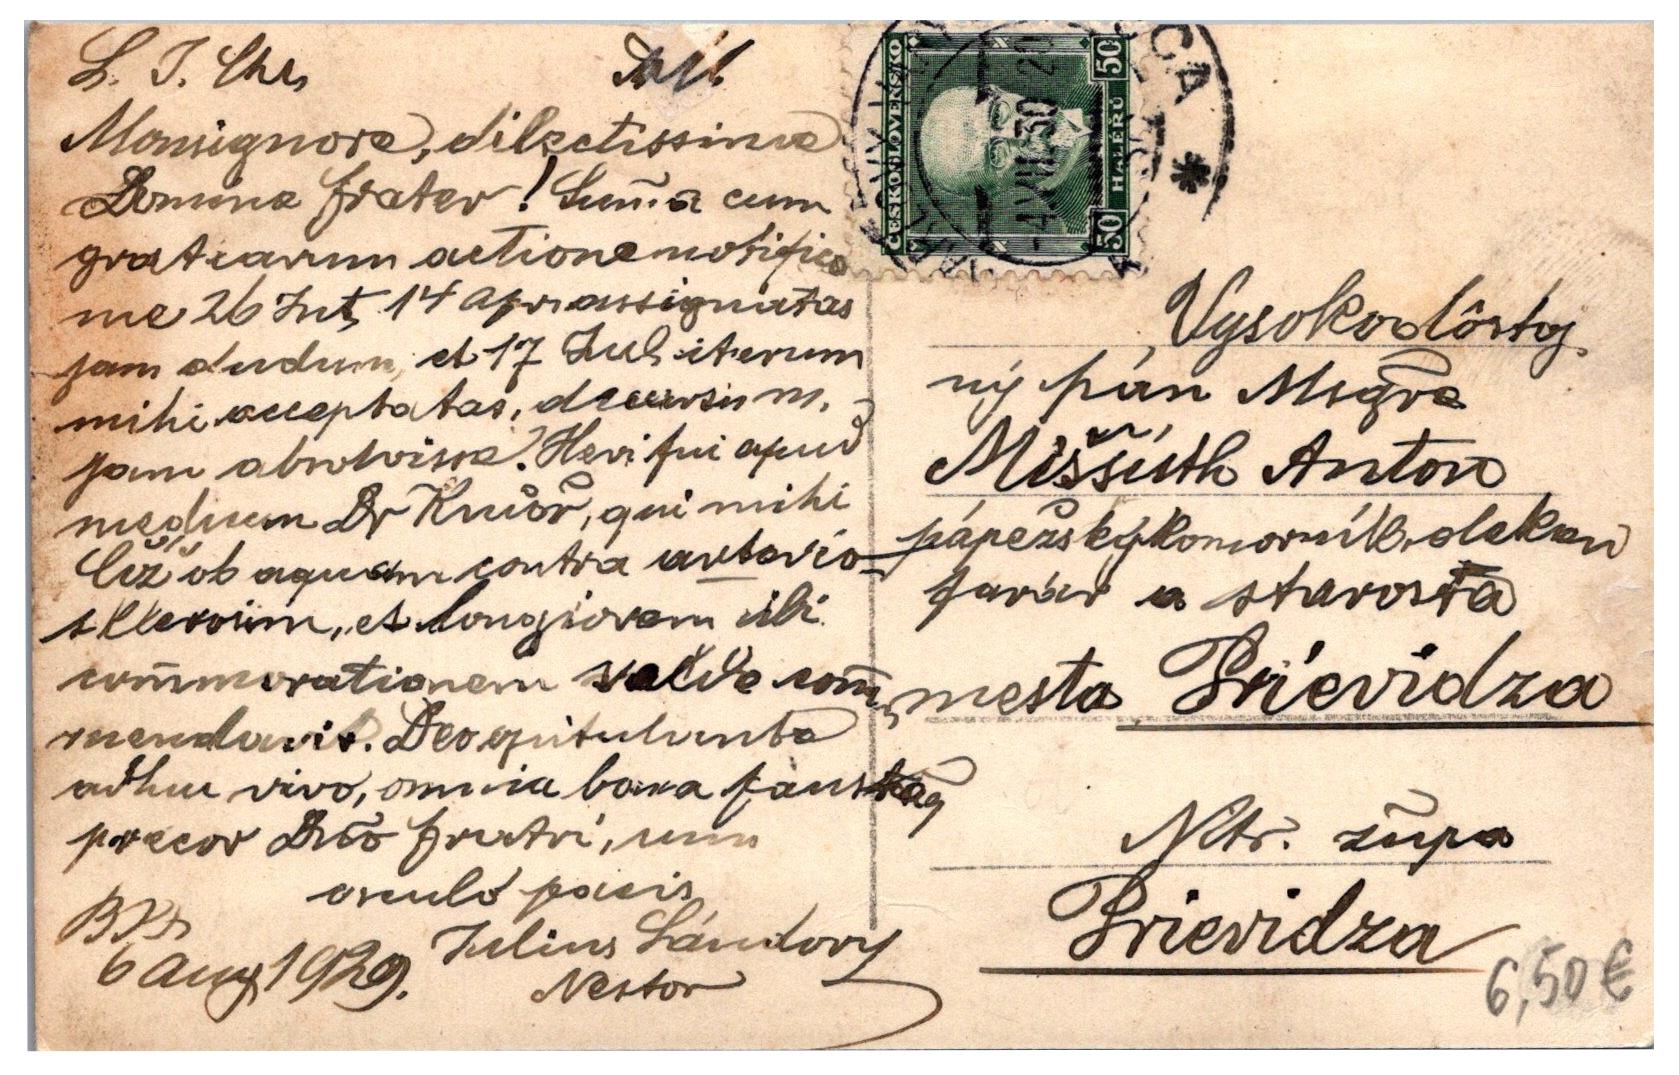 L. J. Chr.
Monsignore, dilectissime
Domine frater! Sum̄a cum
gratiarum actione notifico
me 26 Int, 14 apr assignatas
jam dudum, et 17 Jul iterum
mihi acceptatas, decursim,
jam absolvisse. Heri fui apud
medicum Dr
qui mihi
Číž ob aquam contra arterio-
sklerosim, et longiorem ibi
com̄morationem valde com̄-
mendavit. Deo opitulante
adhuc vivo, omnia bona faustaq
precor Dno fratri, cum
osculo pacis
6 aug 1929. Julius Sándory
Nestor
ČESKOSLOVENSKO
50 HALÉŘŮ 50
Vysokodôstoj
ný pán Msgre
Miššúth Anton
pápežský komorník, dekan
farár a starosta
mesta Prievidza
Ntr. župa
Prievidza
6,50 €